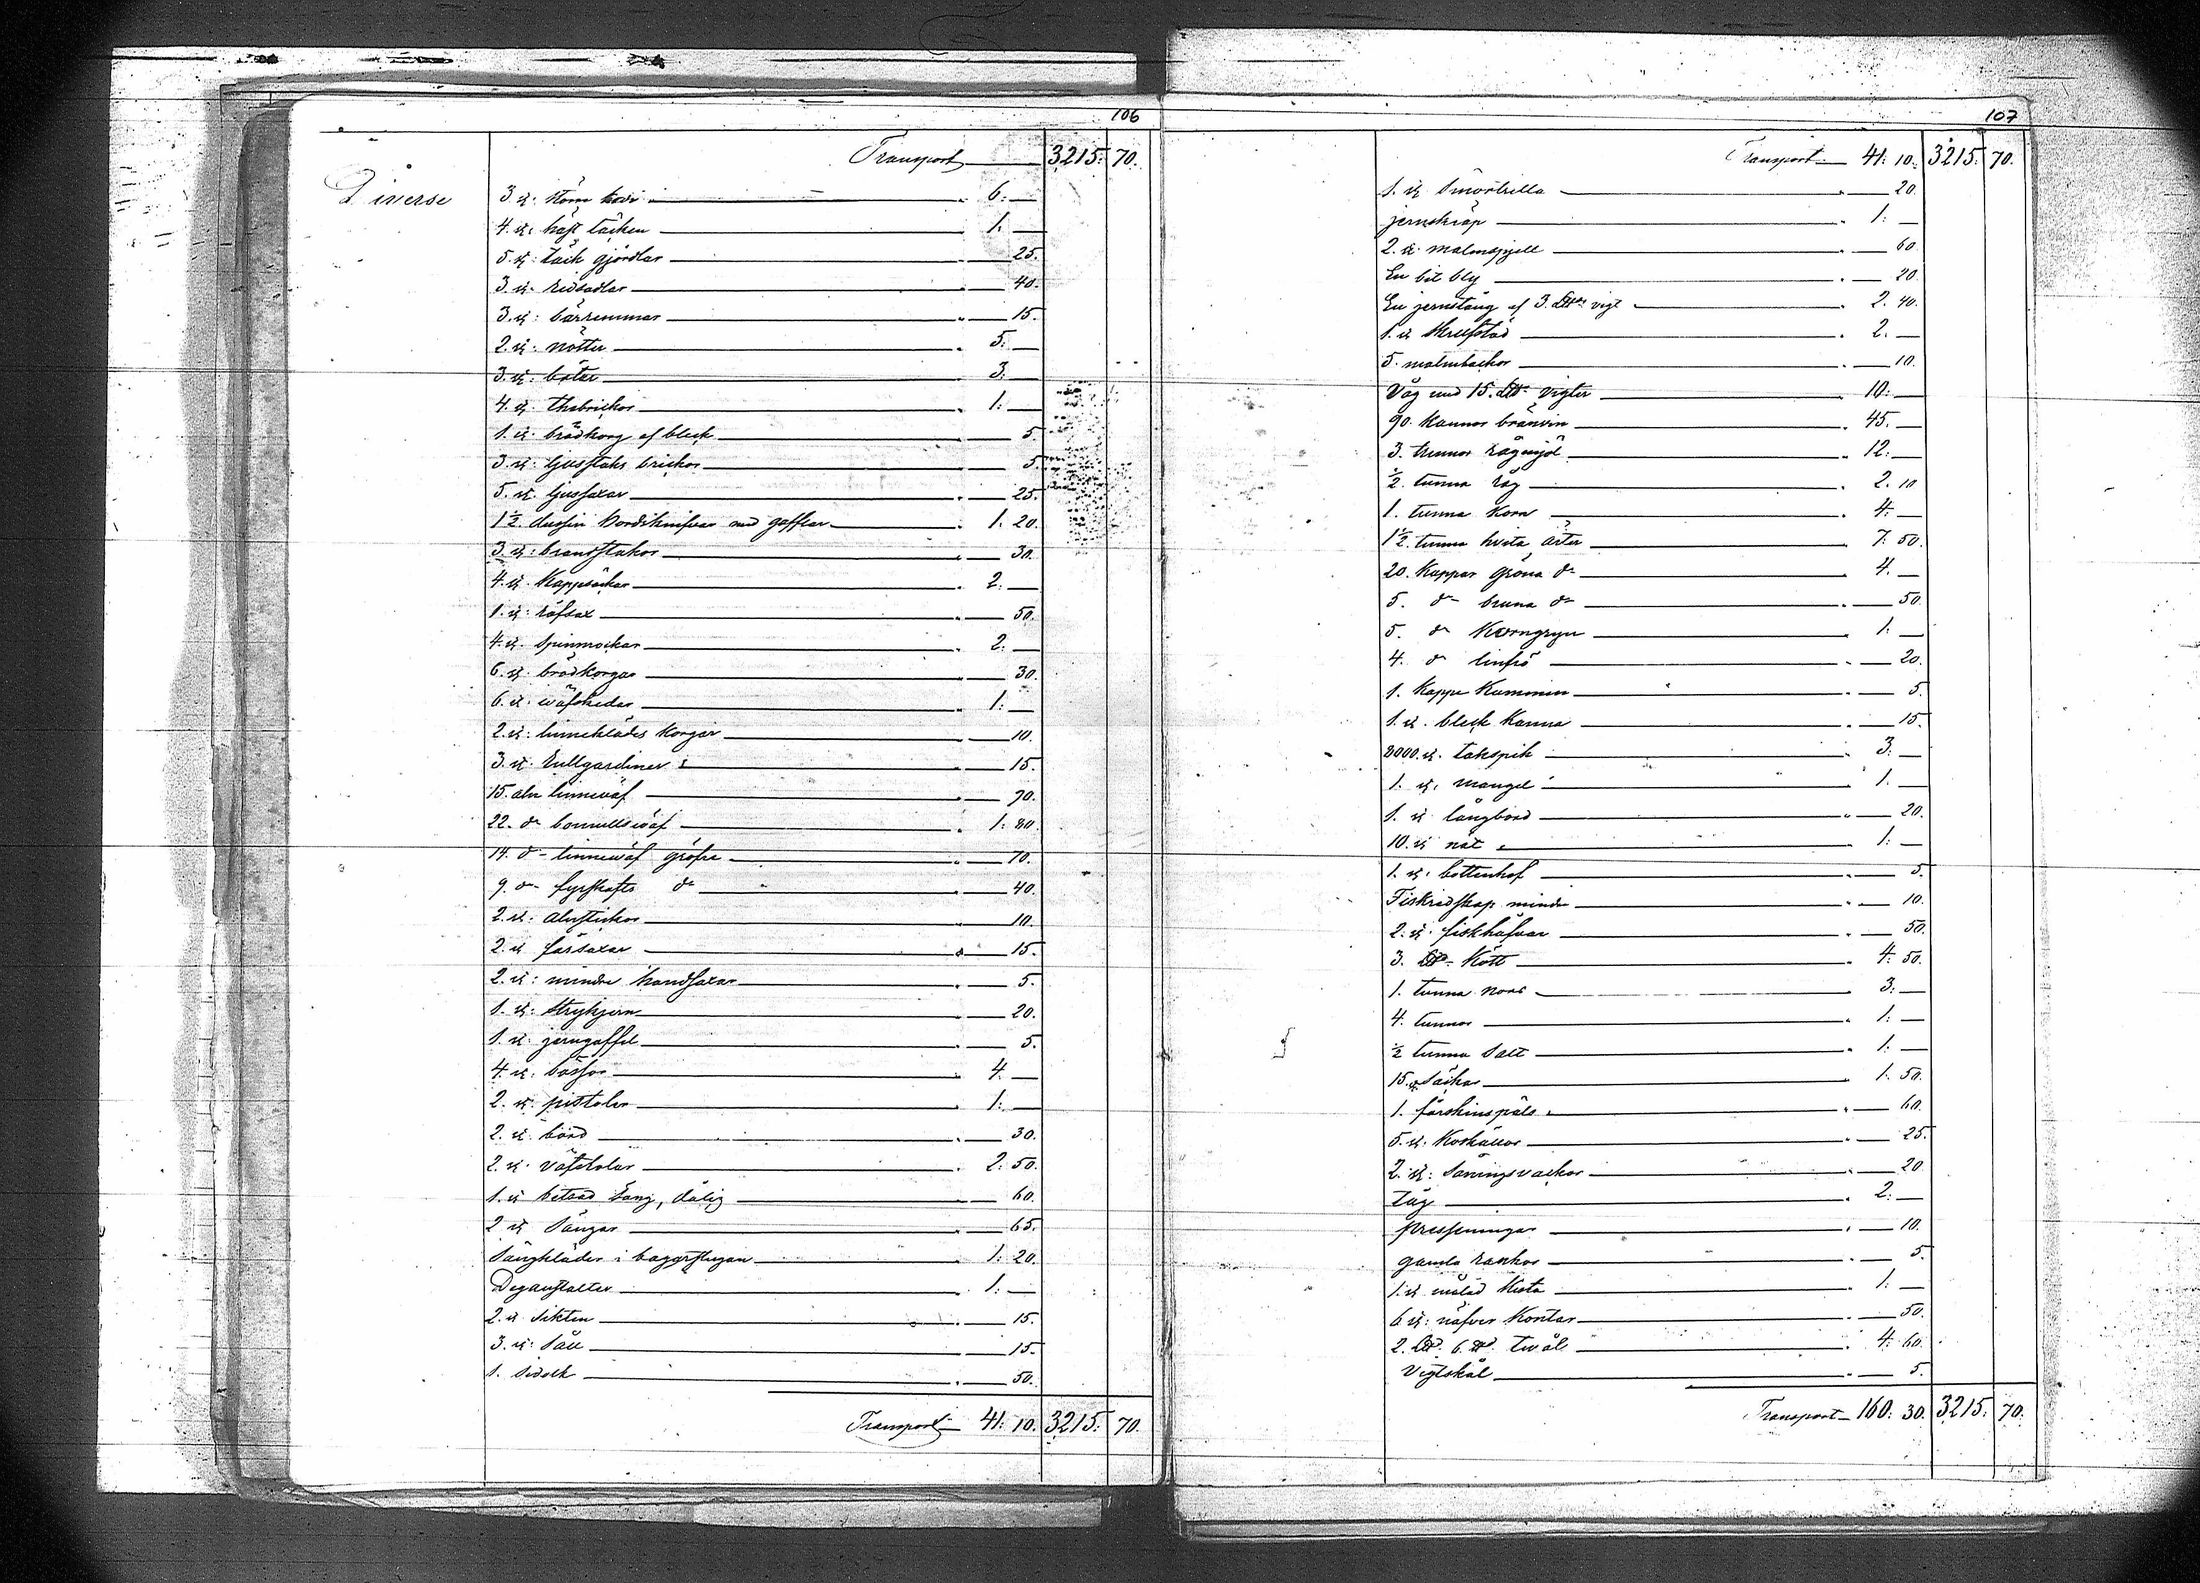 106
Transport 3215. 70.
Diverse
3 st: 6. —
4. st. häst täcken 1. —
5. st: täck gjördar — 25.
3. st. ridsadlar — 40.
3. st: bärremmar — 15.
2. st: nötter 5. —
3. st: båtar 3. —
4. st. thebrickor 1. —
1. st: brödkorg af bleck — 5.
3. st: ljusstaks brickor — 5.
5. st. ljussaxar — 25.
1½ dussin bordsknifvar med gafflar 1. 20.
3 st: brandstakor — 30.
4. st. Kappsäckar 2. —
1. st: räfsax — 50.
4. st. spinnrockar 2. —
6. st. brödkorgar — 30.
6. st: väfskedar 1. —
2. st: linneklädes korgar — 10.
3. st. rullgardiner — 15.
15. aln linneväf — 70.
22. do bomullsväf 1. 80.
14. do linneväf gröfre — 70.
9. do fyrskafts do — 40.
2. st. alnstickor — 10.
2. st fårsaxar — 15.
2. st: mindre handsaxar — 5.
1. st: strykjern — 20.
1. st: jerngaffel — 5.
4. st. bössor 4. —
2. st. pistoler 1. —
2. st. bord — 30.
2. st. väfstolar 2. 50.
1. st betsad säng, dålig — 60.
2 st sängar — 65.
Sängkläder i bagarstugan 1. 20.
Deganstalter 1. —
2. st siktar — 15.
3. st: såll — 15.
1. — 50.
Transport 41. 10. 3215. 70.
107
Transport 41. 10. 3215. 70.
1. st — 20.
jernskräp 1. —
2. st. malmspjell — 60.
En bit bly — 20.
En jernstång af 3. L℔s vigt 2. 40.
1. st skrufstäd 2. —
5. — 10.
Våg med 15. L℔s vigter 10. —
90. kannor bränvin 45. —
3. tunnor rågmjöl 12. —
½. tunna råg 2. 10
1. tunna korn 4. —
1½. tunna hvita ärter 7. 50.
20. kappar gröna do 4. —
5. do bruna do — 50.
5. do Korngryn 1. —
4. do linfrö — 20.
1. kappe Kummin — 5.
1. st. bleck kanna — 15.
3000. st. takspik 3. —
1. st. mangel 1. —
1. st långbord — 20.
10. st nät 1. —
1. st. — 5.
Fiskredskap mindre — 10.
2. st. fiskhåfvar — 50.
3. L℔ Kött 4. 50.
1. tunna nors 3. —
4. tunnor 1. —
½ tunna salt 1. —
15. st säckar 1. 50.
1. fårskinspäls — 60.
5. st. Koskällor — 25.
2. st: såningsvackor — 20
Tåg 2. —
pressenningar — 10.
gamla — 5.
1. st målad kista 1. —
6 st: näfver kontar — 50.
2. L℔. 6. ℔. tvål 4. 60.
Vigtskål — 5.
Transport 160. 30. 3215. 70.